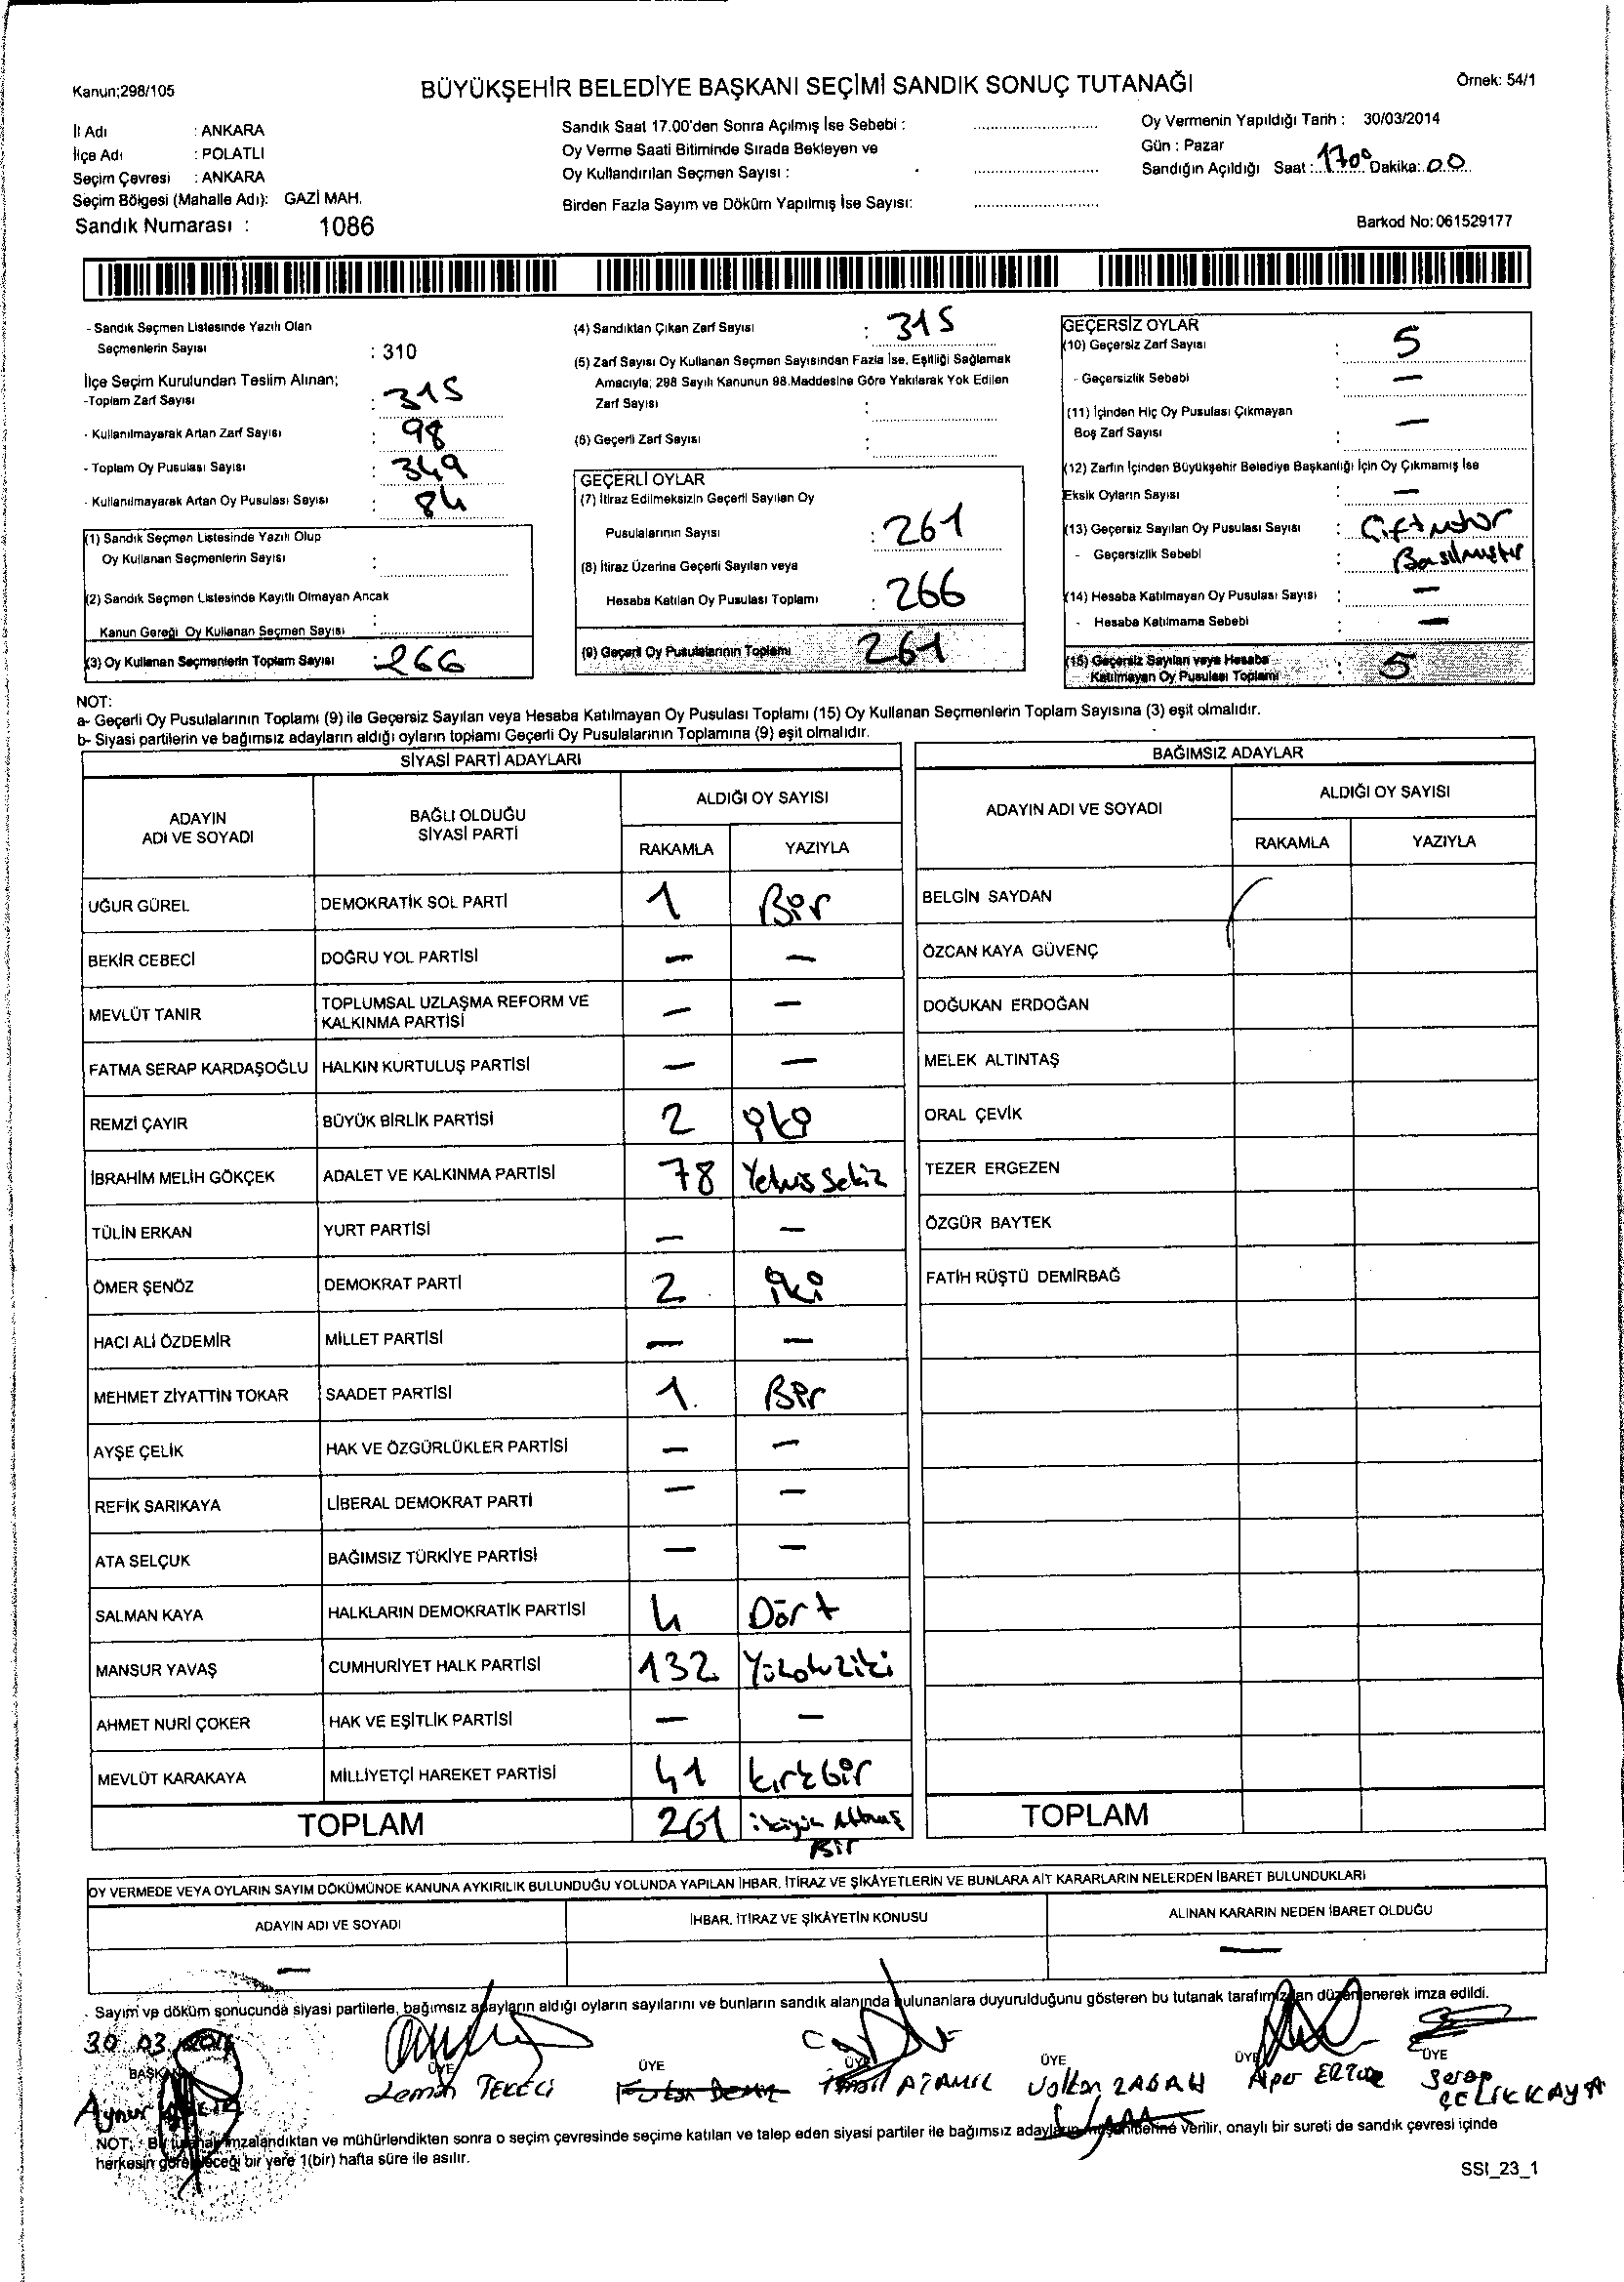 Kanun;298/105
BÜYÜKŞEHİR BELEDİYE BAŞKANI SEÇİMİ SANDIK SONUÇ TUTANAĞI
Örnek: 54/1
İl Adı : ANKARA
İlçe Adı : POLATLI
Seçim Çevresi : ANKARA
Seçim Bölgesi (Mahalle Adı): GAZİ MAH.
Sandık Numarası : 1086
Sandık Saat 17.00'den Sonra Açılmış İse Sebebi :
Oy Verme Saati Bitiminde Sırada Bekleyen ve
Oy Kullandırılan Seçmen Sayısı :
Birden Fazla Sayım ve Döküm Yapılmış İse Sayısı:
Oy Vermenin Yapıldığı Tarih : 30/03/2014
Gün : Pazar
Sandığın Açıldığı Saat : 1700 Dakika: 00
Barkod No: 061529177
- Sandık Seçmen Listesinde Yazılı Olan
Seçmenlerin Sayısı : 310
İlçe Seçim Kurulundan Teslim Alınan;
-Toplam Zarf Sayısı : 315
- Kullanılmayarak Artan Zarf Sayısı : 98
- Toplam Oy Pusulası Sayısı : 349
- Kullanılmayarak Artan Oy Pusulası Sayısı : 84
(1) Sandık Seçmen Listesinde Yazılı Olup
Oy Kullanan Seçmenlerin Sayısı :
(2) Sandık Seçmen Listesinde Kayıtlı Olmayan Ancak
Kanun Gereği Oy Kullanan Seçmen Sayısı :
(3) Oy Kullanan Seçmenlerin Toplam Sayısı : 266
(4) Sandıktan Çıkan Zarf Sayısı : 315
(5) Zarf Sayısı Oy Kullanan Seçmen Sayısından Fazla İse, Eşitliği Sağlamak
Amacıyla; 298 Sayılı Kanunun 98.Maddesine Göre Yakılarak Yok Edilen
Zarf Sayısı :
(6) Geçerli Zarf Sayısı :
GEÇERLİ OYLAR
(7) İtiraz Edilmeksizin Geçerli Sayılan Oy
Pusulalarının Sayısı : 261
(8) İtiraz Üzerine Geçerli Sayılan veya
Hesaba Katılan Oy Pusulası Toplamı : 266
(9) Geçerli Oy Pusulalarının Toplamı 261
GEÇERSİZ OYLAR
(10) Geçersiz Zarf Sayısı : 5
- Geçersizlik Sebebi : —
(11) İçinden Hiç Oy Pusulası Çıkmayan
Boş Zarf Sayısı : —
(12) Zarfın İçinden Büyükşehir Belediye Başkanlığı İçin Oy Çıkmamış İse
Eksik Oyların Sayısı : —
(13) Geçersiz Sayılan Oy Pusulası Sayısı : Çift mühür
- Geçersizlik Sebebi : Basılmıştır
(14) Hesaba Katılmayan Oy Pusulası Sayısı : —
- Hesaba Katılmama Sebebi : —
(15) Geçersiz Sayılan veya Hesaba
Katılmayan Oy Pusulası Toplamı : 5
NOT:
a- Geçerli Oy Pusulalarının Toplamı (9) ile Geçersiz Sayılan veya Hesaba Katılmayan Oy Pusulası Toplamı (15) Oy Kullanan Seçmenlerin Toplam Sayısına (3) eşit olmalıdır.
b- Siyasi partilerin ve bağımsız adayların aldığı oyların toplamı Geçerli Oy Pusulalarının Toplamına (9) eşit olmalıdır.
SİYASİ PARTİ ADAYLARI
ADAYIN ADI VE SOYADI
BAĞLI OLDUĞU SİYASİ PARTİ
ALDIĞI OY SAYISI
RAKAMLA YAZIYLA
UĞUR GÜREL DEMOKRATİK SOL PARTİ 1 Bir
BEKİR CEBECİ DOĞRU YOL PARTİSİ — —
MEVLÜT TANIR TOPLUMSAL UZLAŞMA REFORM VE KALKINMA PARTİSİ — —
FATMA SERAP KARDAŞOĞLU HALKIN KURTULUŞ PARTİSİ — —
REMZİ ÇAYIR BÜYÜK BİRLİK PARTİSİ 2 iki
İBRAHİM MELİH GÖKÇEK ADALET VE KALKINMA PARTİSİ 78 Yetmiş Sekiz
TÜLİN ERKAN YURT PARTİSİ — —
ÖMER ŞENÖZ DEMOKRAT PARTİ 2 iki
HACI ALİ ÖZDEMİR MİLLET PARTİSİ — —
MEHMET ZİYATTİN TOKAR SAADET PARTİSİ 1 Bir
AYŞE ÇELİK HAK VE ÖZGÜRLÜKLER PARTİSİ — —
REFİK SARIKAYA LİBERAL DEMOKRAT PARTİ — —
ATA SELÇUK BAĞIMSIZ TÜRKİYE PARTİSİ — —
SALMAN KAYA HALKLARIN DEMOKRATİK PARTİSİ 4 Dört
MANSUR YAVAŞ CUMHURİYET HALK PARTİSİ 132 Yüzotuziki
AHMET NURİ ÇOKER HAK VE EŞİTLİK PARTİSİ — —
MEVLÜT KARAKAYA MİLLİYETÇİ HAREKET PARTİSİ 41 kırkbir
TOPLAM 261 ikiyüz Altmış
Bir
BAĞIMSIZ ADAYLAR
ADAYIN ADI VE SOYADI
ALDIĞI OY SAYISI
RAKAMLA YAZIYLA
BELGİN SAYDAN
ÖZCAN KAYA GÜVENÇ
DOĞUKAN ERDOĞAN
MELEK ALTINTAŞ
ORAL ÇEVİK
TEZER ERGEZEN
ÖZGÜR BAYTEK
FATİH RÜŞTÜ DEMİRBAĞ
TOPLAM
OY VERMEDE VEYA OYLARIN SAYIM DÖKÜMÜNDE KANUNA AYKIRILIK BULUNDUĞU YOLUNDA YAPILAN İHBAR, İTİRAZ VE ŞİKÂYETLERİN VE BUNLARA AİT KARARLARIN NELERDEN İBARET BULUNDUKLARI
ADAYIN ADI VE SOYADI
İHBAR, İTİRAZ VE ŞİKÂYETİN KONUSU
ALINAN KARARIN NEDEN İBARET OLDUĞU
— —
Sayım ve döküm sonucunda siyasi partilerle, bağımsız adayların aldığı oyların sayılarını ve bunların sandık alanında bulunanlara duyurulduğunu gösteren bu tutanak tarafımızdan düzenlenerek imza edildi.
30 03 2014
BAŞKAN ÜYE ÜYE ÜYE ÜYE ÜYE ÜYE
Aynur
TEKELİ
Volkan
Alper
Serap
ÇELİKKAYA
NOT: Bu tutanak imzalandıktan ve mühürlendikten sonra o seçim çevresinde seçime katılan ve talep eden siyasi partiler ile bağımsız adayların müşahitlerine verilir, onaylı bir sureti de sandık çevresi içinde
herkesin görebileceği bir yere 1(bir) hafta süre ile asılır.
SSI_23_1